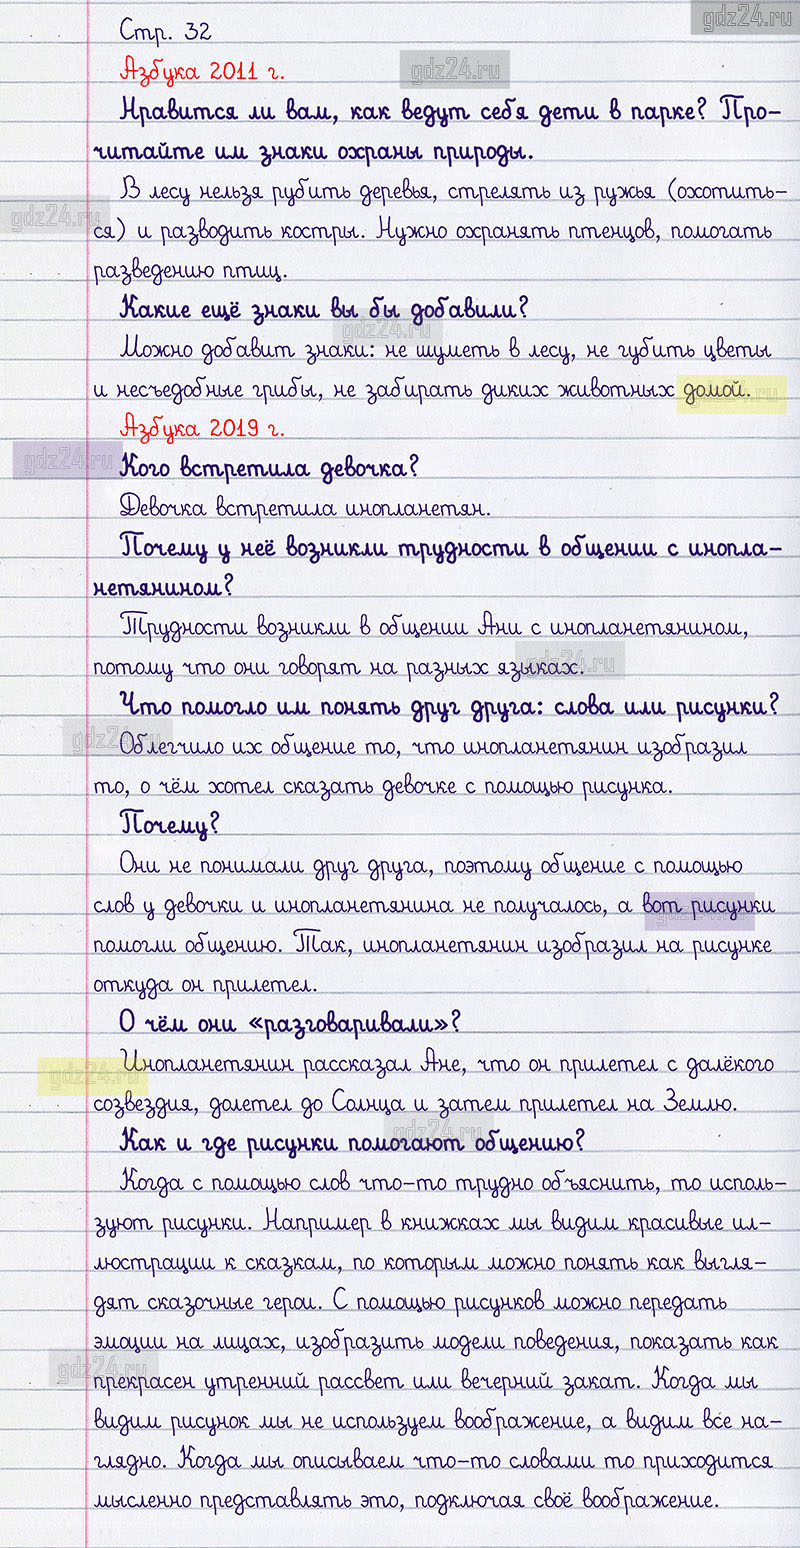 gdz24.ru
Стр. 32
Азбука 2011 г.
gdz24.ru
Нравится ли вам, как ведут себя дети в парке? Про-
читайте им знаки охраны природы.
В лесу нельзя рубить деревья, стрелять из ружья (охотить-
gdz24.ru
ся) и разводить костры. Нужно охранять птенцов, помогать
разведению птиц.
Какие ещё знаки вы бы добавили?
gdz24.ru
Можно добавит знаки: не шуметь в лесу, не губить цветы
и несъедобные грибы, не забирать диких животных домой.
gdz24.ru
Азбука 2019 г.
gdz24.ru
Кого встретила девочка?
Девочка встретила инопланетян.
Почему у неё возникли трудности в общении с инопла-
нетянином?
Трудности возникли в общении Ани с инопланетянином,
потому что они говорят на разных языках.
gdz24.ru
Что помогло им понять друг друга: слова или рисунки?
gdz24.ru
Облегчило их общение то, что инопланетянин изобразил
то, о чём хотел сказать девочке с помощью рисунка.
Почему?
Они не понимали друг друга, поэтому общение с помощью
слов у девочки и инопланетянина не получалось, а вот рисунки
gdz24.ru
помогли общению. Так, инопланетянин изобразил на рисунке
откуда он прилетел.
О чём они «разговаривали»?
Инопланетянин рассказал Ане, что он прилетел с далёкого
gdz24.ru
созвездия, долетел до Солнца и затем прилетел на Землю.
gdz24.ru
Как и где рисунки помогают общению?
Когда с помощью слов что-то трудно объяснить, то исполь-
зуют рисунки. Например в книжках мы видим красивые ил-
люстрации к сказкам, по которым можно понять как выгля-
дят сказочные герои. С помощью рисунков можно передать
эмоции на лицах, изобразить модели поведения, показать как
gdz24.ru
прекрасен утренний рассвет или вечерний закат. Когда мы
видим рисунок мы не используем воображение, а видим все на-
глядно. Когда мы описываем что-то словами то приходится
мысленно представлять это, подключая своё воображение.